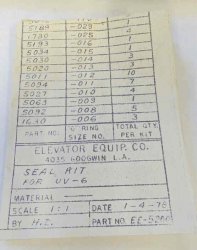 5189 -029 1
1780 -025 4
5193 -016 1
5094 -015 1
5030 -014 3
5020 -013 3
5011 -012 10
5094 -011 7
5027 -010 4
5063 -009 1
5092 -008 5
1630 -006 3
PART NO. "O" RING SIZE NO. TOTAL QTY. PER KIT
ELEVATOR EQUIP. CO.
4035 GOODWIN L.A.
SEAL KIT
FOR UV-6
MATERIAL
SCALE 1:1 DATE 1-4-78
BY H.Z. PART NO. EE-5280